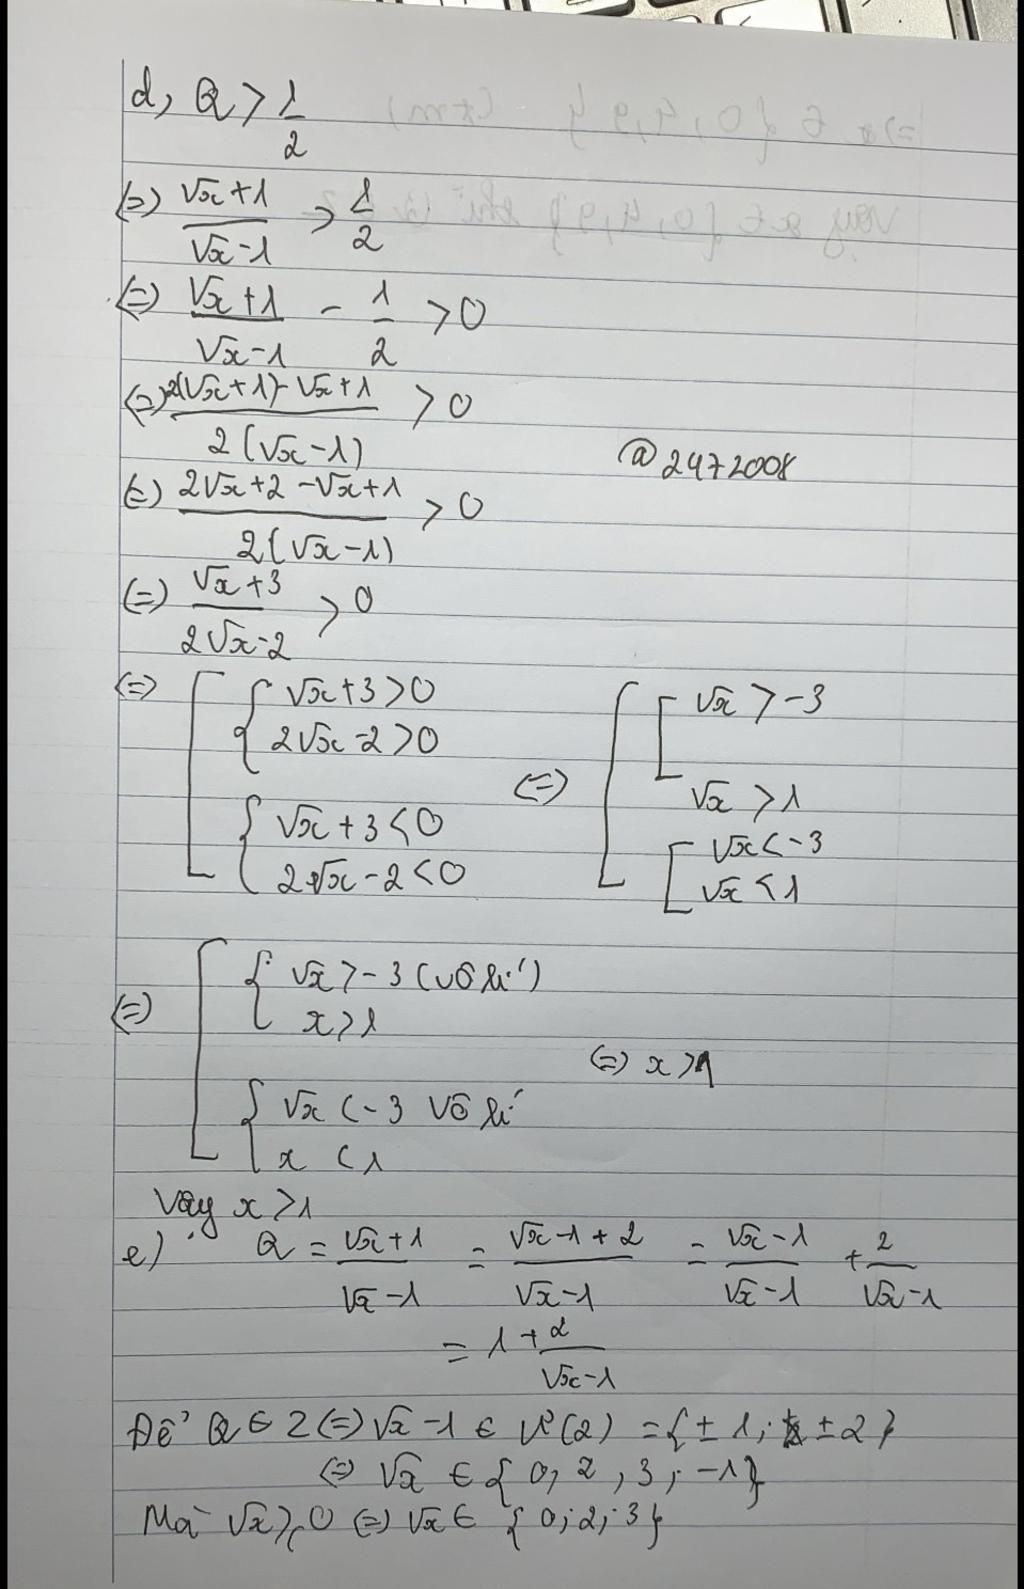 d, Q > 1/2
(=) (√x+1)/(√x-1) > 1/2
(=) (√x+1)/(√x-1) - 1/2 > 0
(=) (2(√x+1)-√x+1)/(2(√x-1)) > 0
@2472008
(=) (2√x+2-√x+1)/(2(√x-1)) > 0
(=) (√x+3)/(2√x-2) > 0
(=) [ { √x+3>0
2√x-2>0
{ √x+3<0
2√x-2<0
(=) [ [ √x > -3
√x > 1
[ √x < -3
√x < 1
(=) [ { √x > -3 (vô lí)
x > 1
{ √x < -3 vô lí
x < 1
(=) x > 1
Vậy x > 1
e) Q = (√x+1)/(√x-1) = (√x-1+2)/(√x-1) = (√x-1)/(√x-1) + 2/(√x-1)
= 1 + 2/(√x-1)
Để Q ∈ Z (=) √x-1 ∈ Ư(2) = {±1; ±2}
(=) √x ∈ {0, 2, 3; -1}
Mà √x ≥ 0 (=) √x ∈ {0; 2; 3}